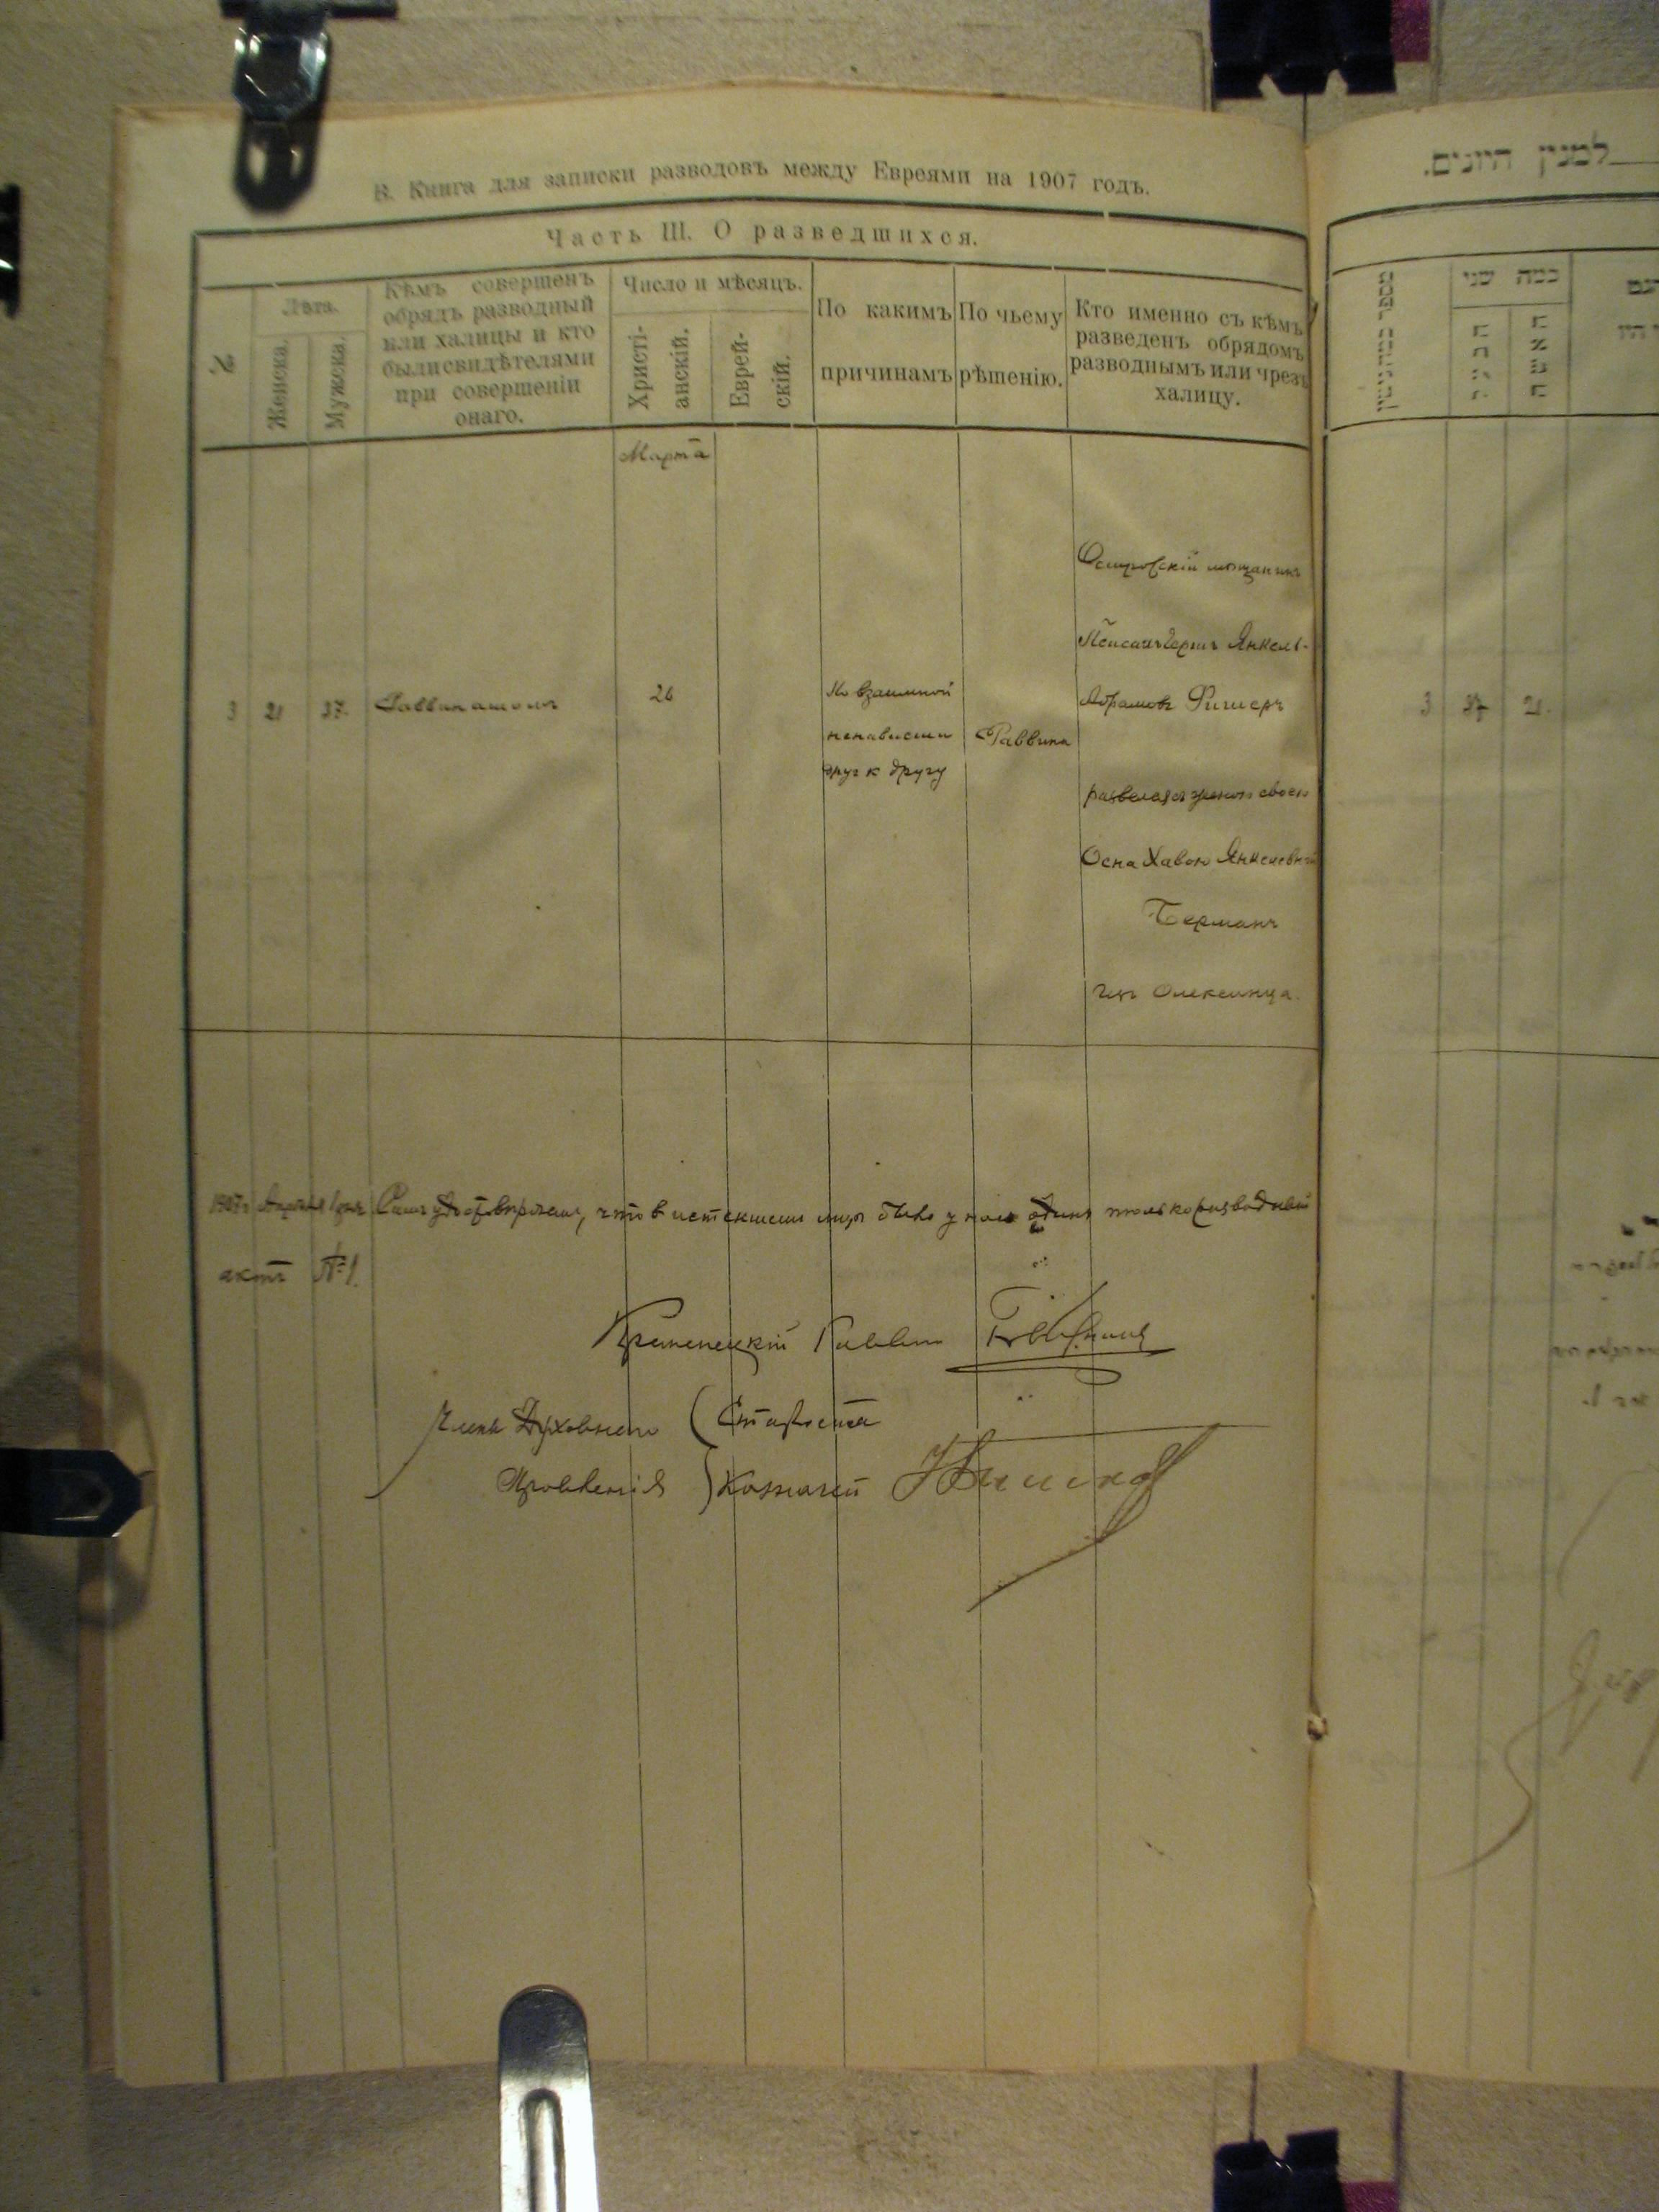 В. Книга для записки разводовъ между Евреями на 1907 годъ.
Часть III. О разведшихся.
№
Лѣта.
Женска.
Мужска.
Кѣмъ совершенъ
обрядъ разводный
или халицы и кто
были свидѣтелями
при совершеніи
онаго.
Число и мѣсяцъ.
Христі-
анскій.
Еврей-
скій.
По какимъ
причинамъ
По чьему
рѣшенію.
Кто именно съ кѣмъ
разведенъ обрядомъ
разводнымъ или чрезъ
халицу.
Марта
3
21
37.
Раввинашомъ
26
По взаимной
ненависти
друг к другу
Раввина
Островскій мѣщанинъ
Янкель-
Абрамовъ Фишеръ
развелся съ женою своею
Осна Хавою Янкелевной
Берманъ
изъ Олексинца.
1907 г. Апрѣля 1 дня Симъ удостовѣряемъ, что в истекшемъ мцѣ было у насъ одинъ только разводный
актъ №1.
Кременецкій Раввин
Члены Духовнаго
Правленія
Староста
Казначей
למנין היונים.
מספר הגרושין
כמה שני
הבעל
האשה
3
37
21.